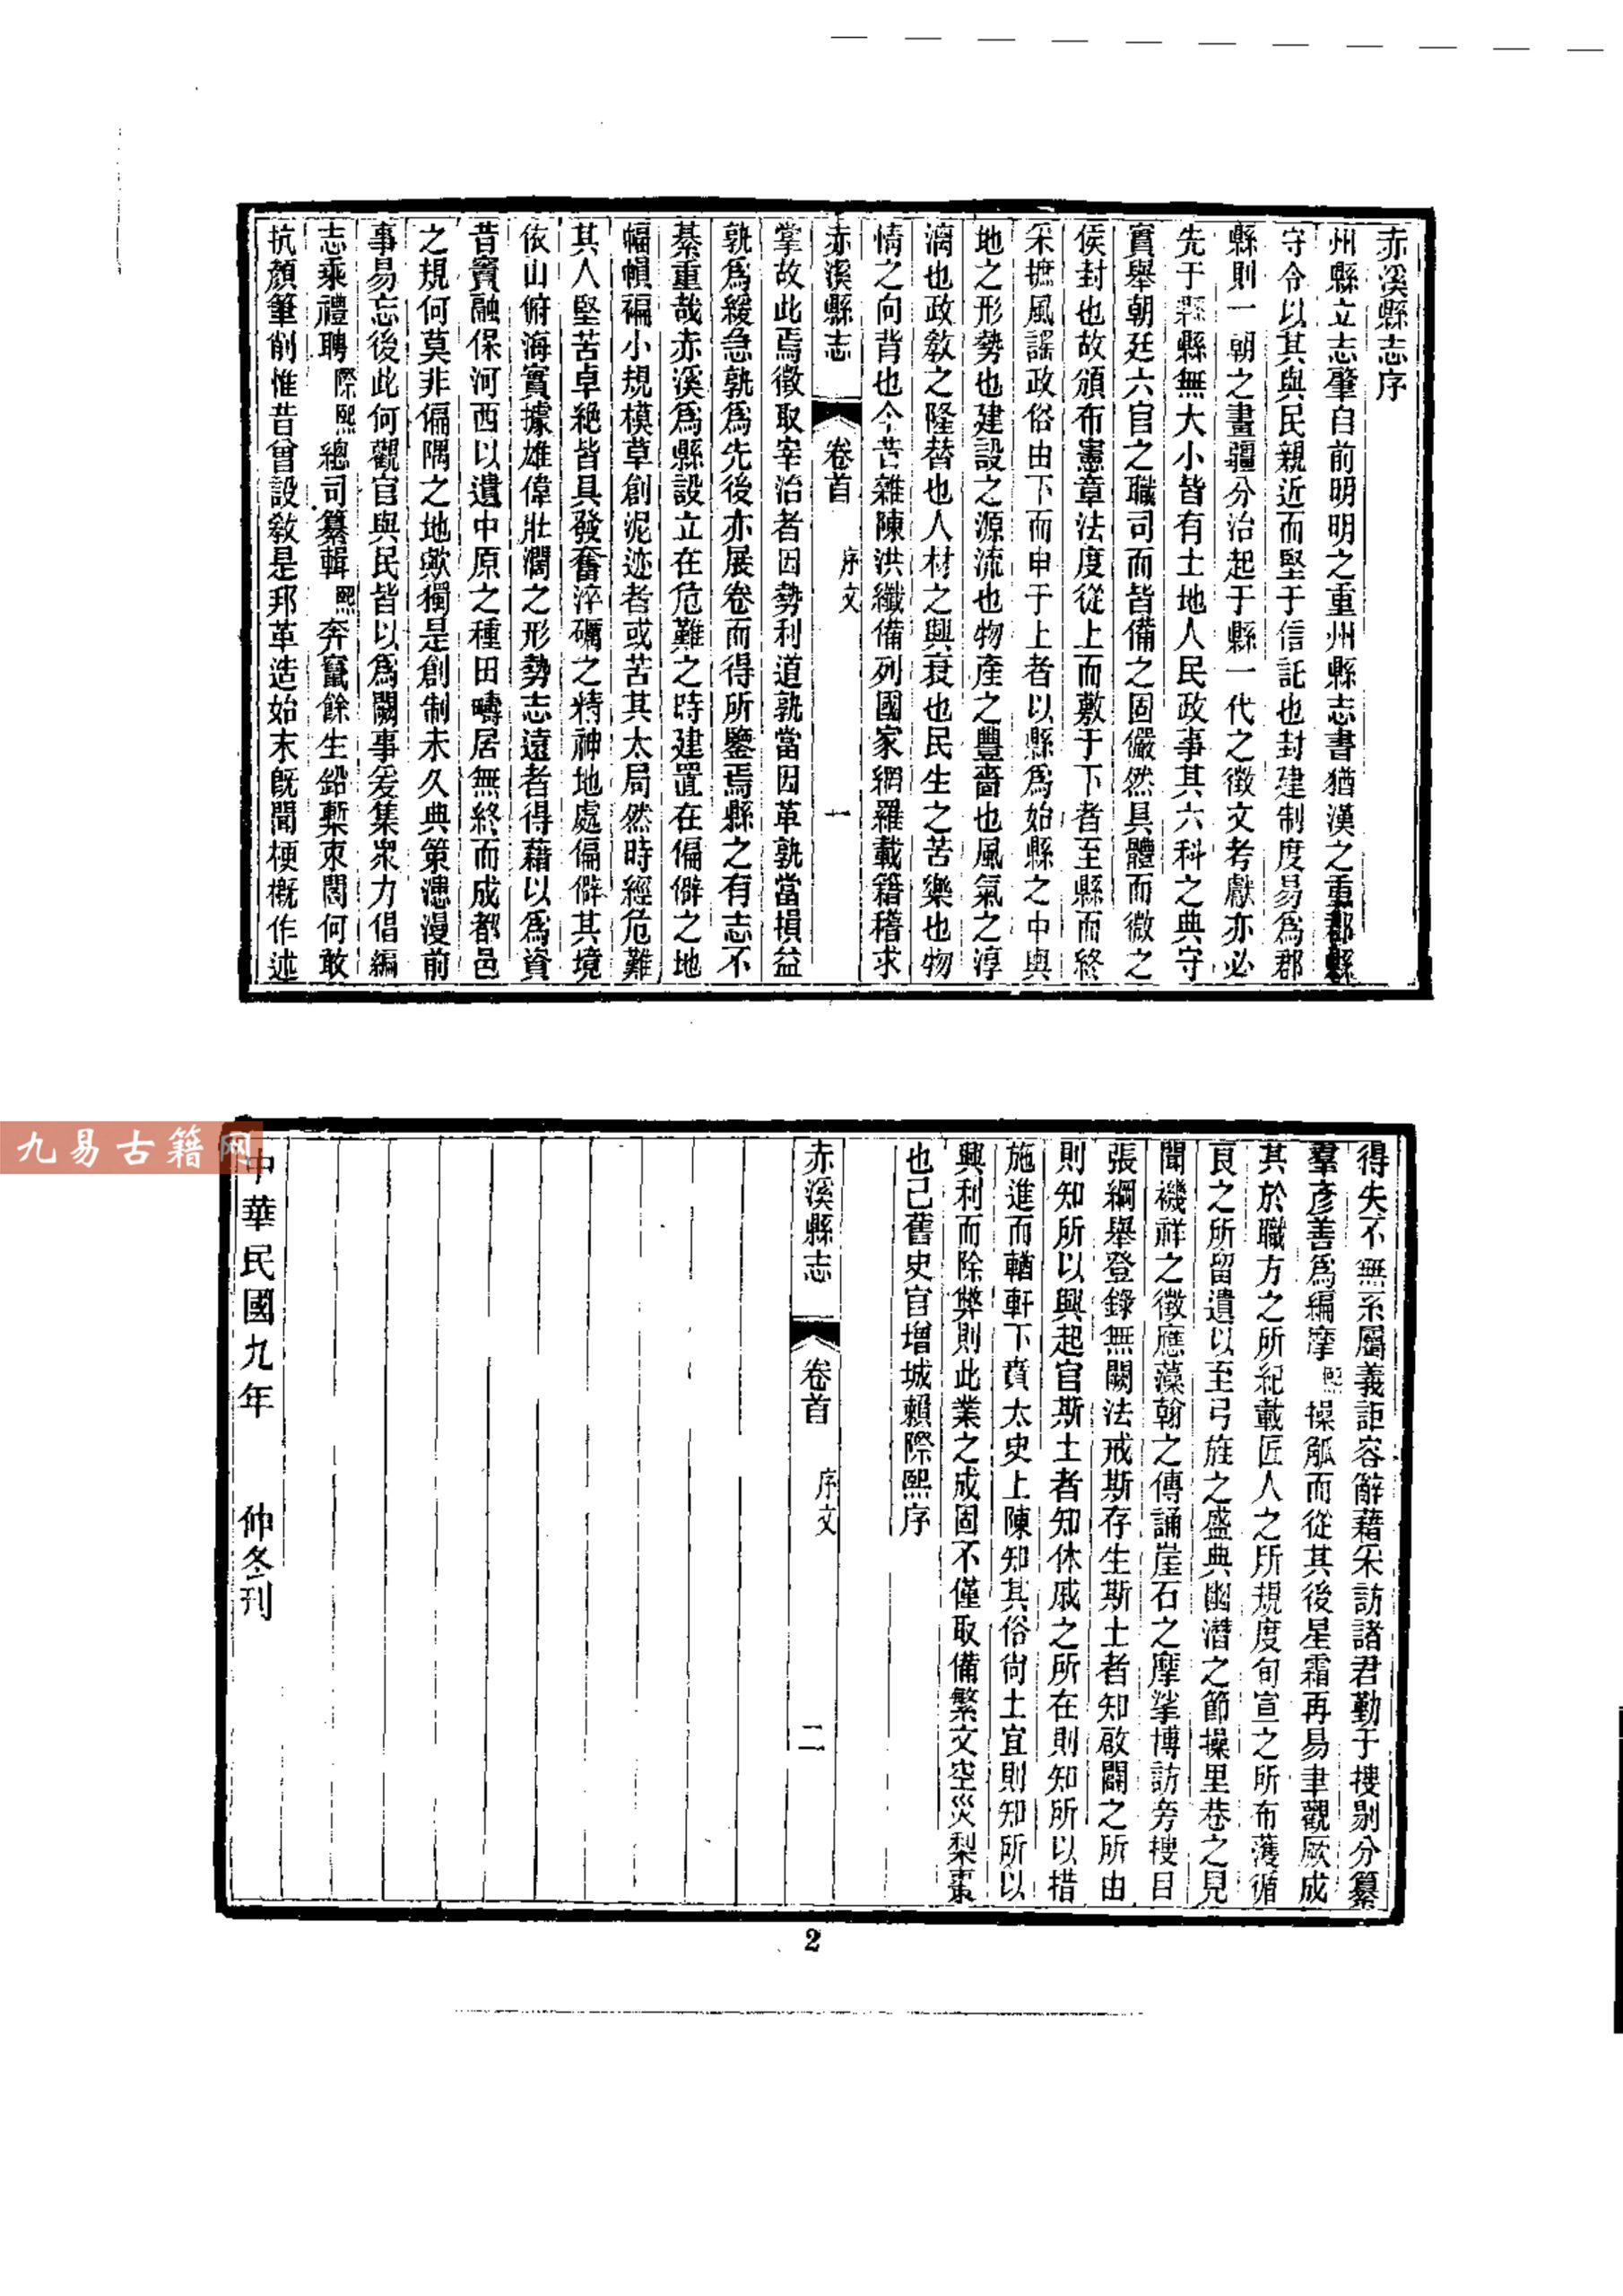 赤溪縣志序
州縣立志肇自前明明之重州縣志書猶漢之重郡縣
守令以其與民親近而堅于信託也封建制度易為郡
縣則一朝之畫疆分治起于縣一代之徵文考獻亦必
先于縣縣無大小皆有土地人民政事其六科之典守
實舉朝廷六官之職司而皆備之固儼然具體而微之
侯封也故頒布憲章法度從上而敷于下者至縣而終
采摭風謠政俗由下而申于上者以縣爲始縣之中輿
地之形勢也建設之源流也物產之豐嗇也風氣之淳
漓也政敎之隆替也人材之興衰也民生之苦樂也物
情之向背也今苦雜陳洪纖備列國家網羅載籍稽求
赤溪縣志 卷首 序文 一
掌故此焉徵取宰治者因勢利道孰當因革孰當損益
孰爲緩急孰爲先後亦展卷而得所鑒焉縣之有志不
綦重哉赤溪爲縣設立在危難之時建置在偏僻之地
幅幀褊小規模草創泥迹者或苦其太局然時經危難
其人堅苦卓絕皆具發奮淬礪之精神地處偏僻其境
依山俯海實據雄偉壯濶之形勢志遠者得藉以爲資
昔竇融保河西以遺中原之種田疇居無終而成都邑
之規何莫非偏隅之地歟獨是創制未久典策漶漫前
事易忘後此何觀官與民皆以爲闕事爰集衆力倡編
志乘禮聘際熙總司纂輯熙奔竄餘生鉛槧束閣何敢
抗顏筆削惟昔曾設敎是邦革造始末旣聞梗槪作述
得失不無系屬義詎容辭藉采訪諸君勤于摟剔分纂
羣彥善爲編摩熙操觚而從其後星霜再易聿觀厥成
其於職方之所紀載匠人之所規度旬宣之所布濩循
良之所留遺以至弓旌之盛典幽潛之節操里巷之見
聞禨祥之徵應藻翰之傳誦崖石之摩挲博訪旁摟目
張綱舉登錄無闕法戒斯存生斯土者知啟闢之所由
則知所以興起官斯土者知休戚之所在則知所以措
施進而輶軒下賁太史上陳知其俗尙土宜則知所以
興利而除弊則此業之成固不僅取備繁文空災梨棗
也已舊史官增城賴際熙序
赤溪縣志 卷首 序文 二
中華民國九年 仲冬刊
2
九易古籍网